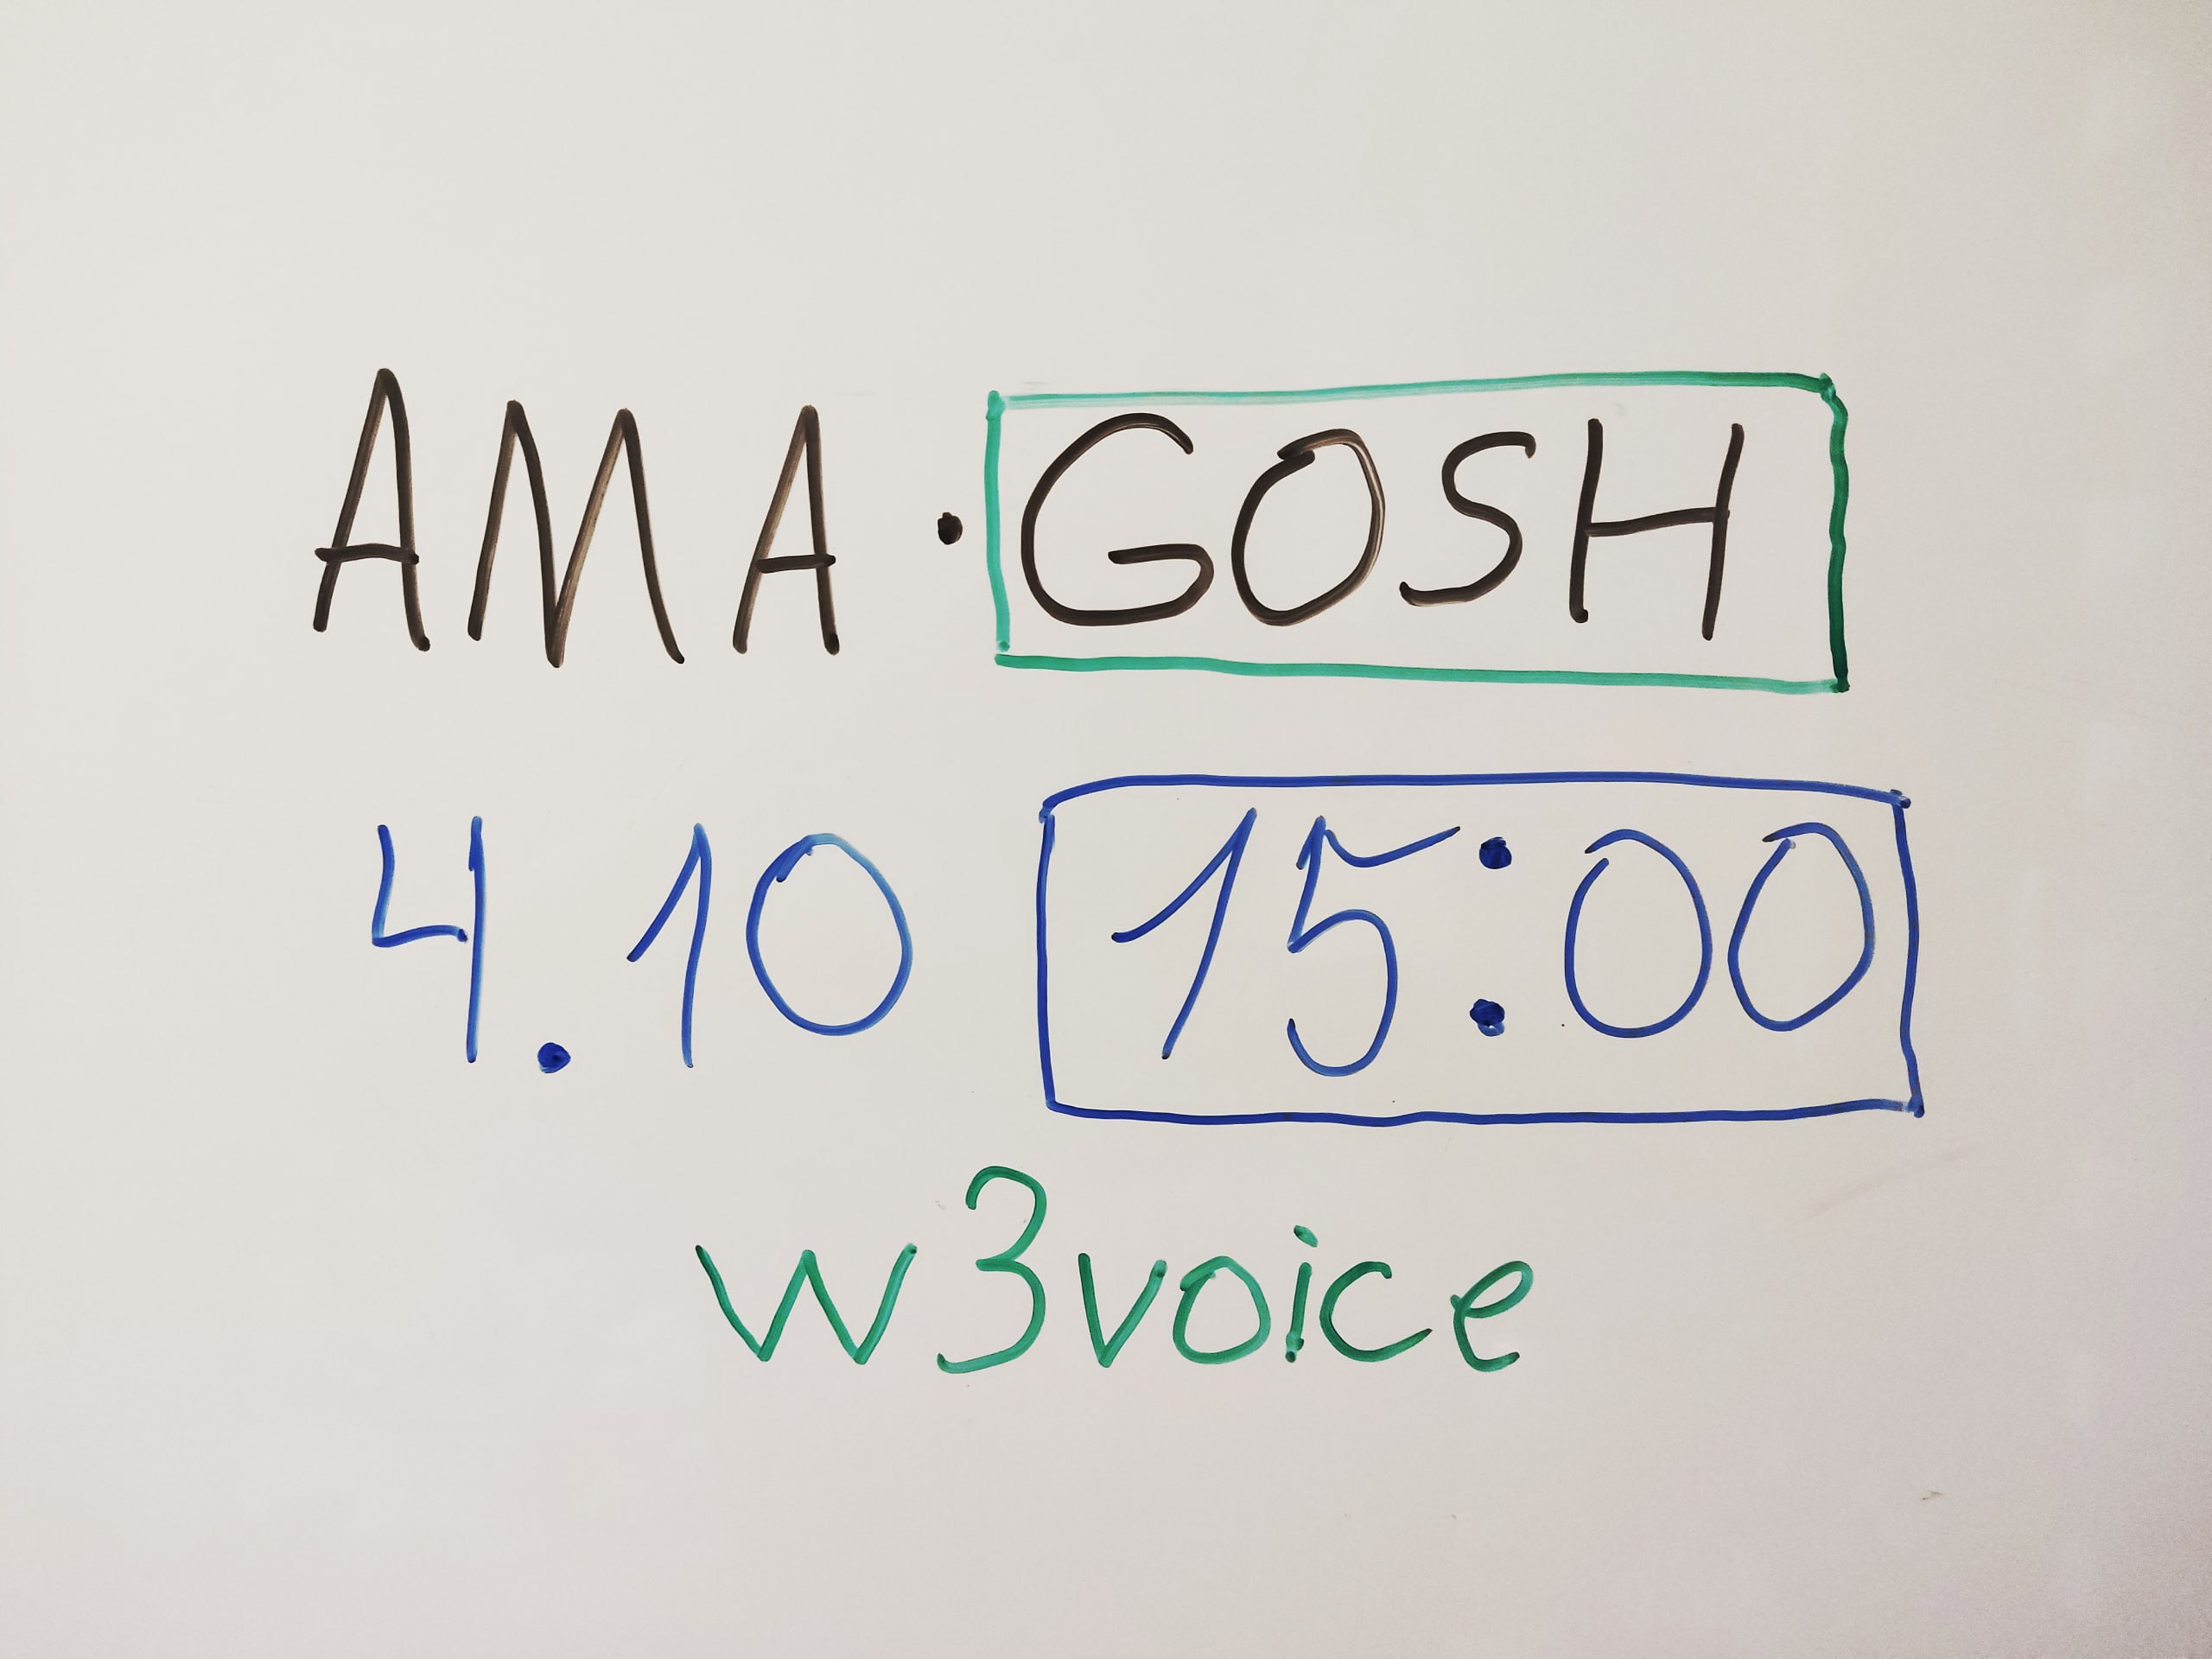 AMA · GOSH
4.10 15:00
w3voice